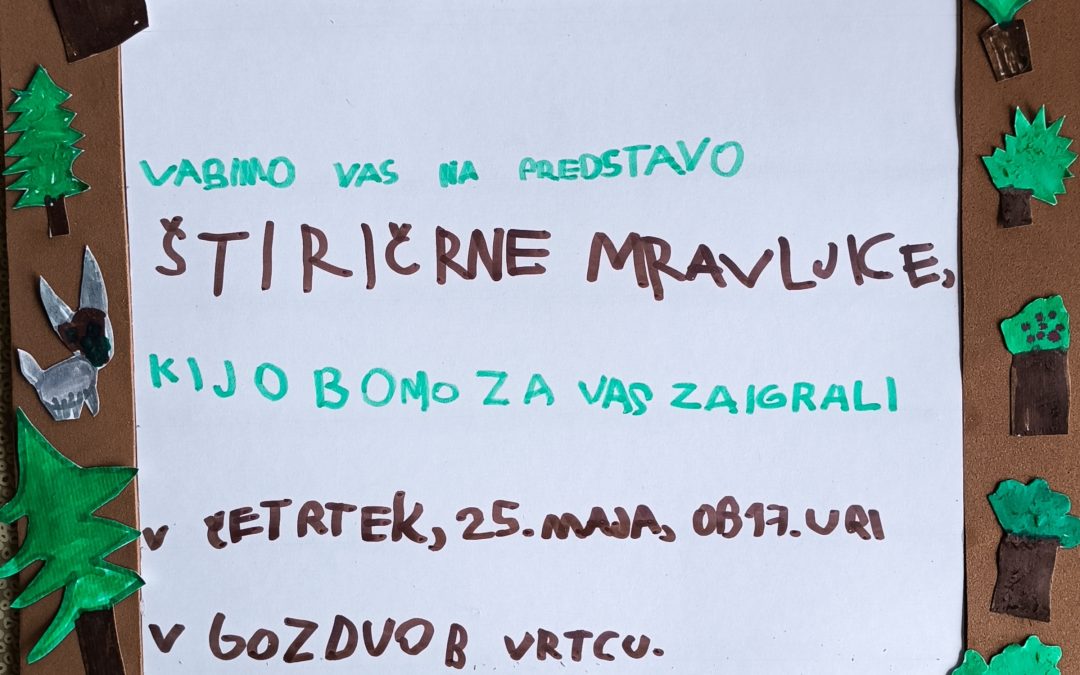 VABIMO VAS NA PREDSTAVO
ŠTIRI ČRNE MRAVLJICE,
KI JO BOMO ZA VAS ZAIGRALI
V ČETRTEK, 25. MAJA, OB 17. URI
V GOZDU OB VRTCU.